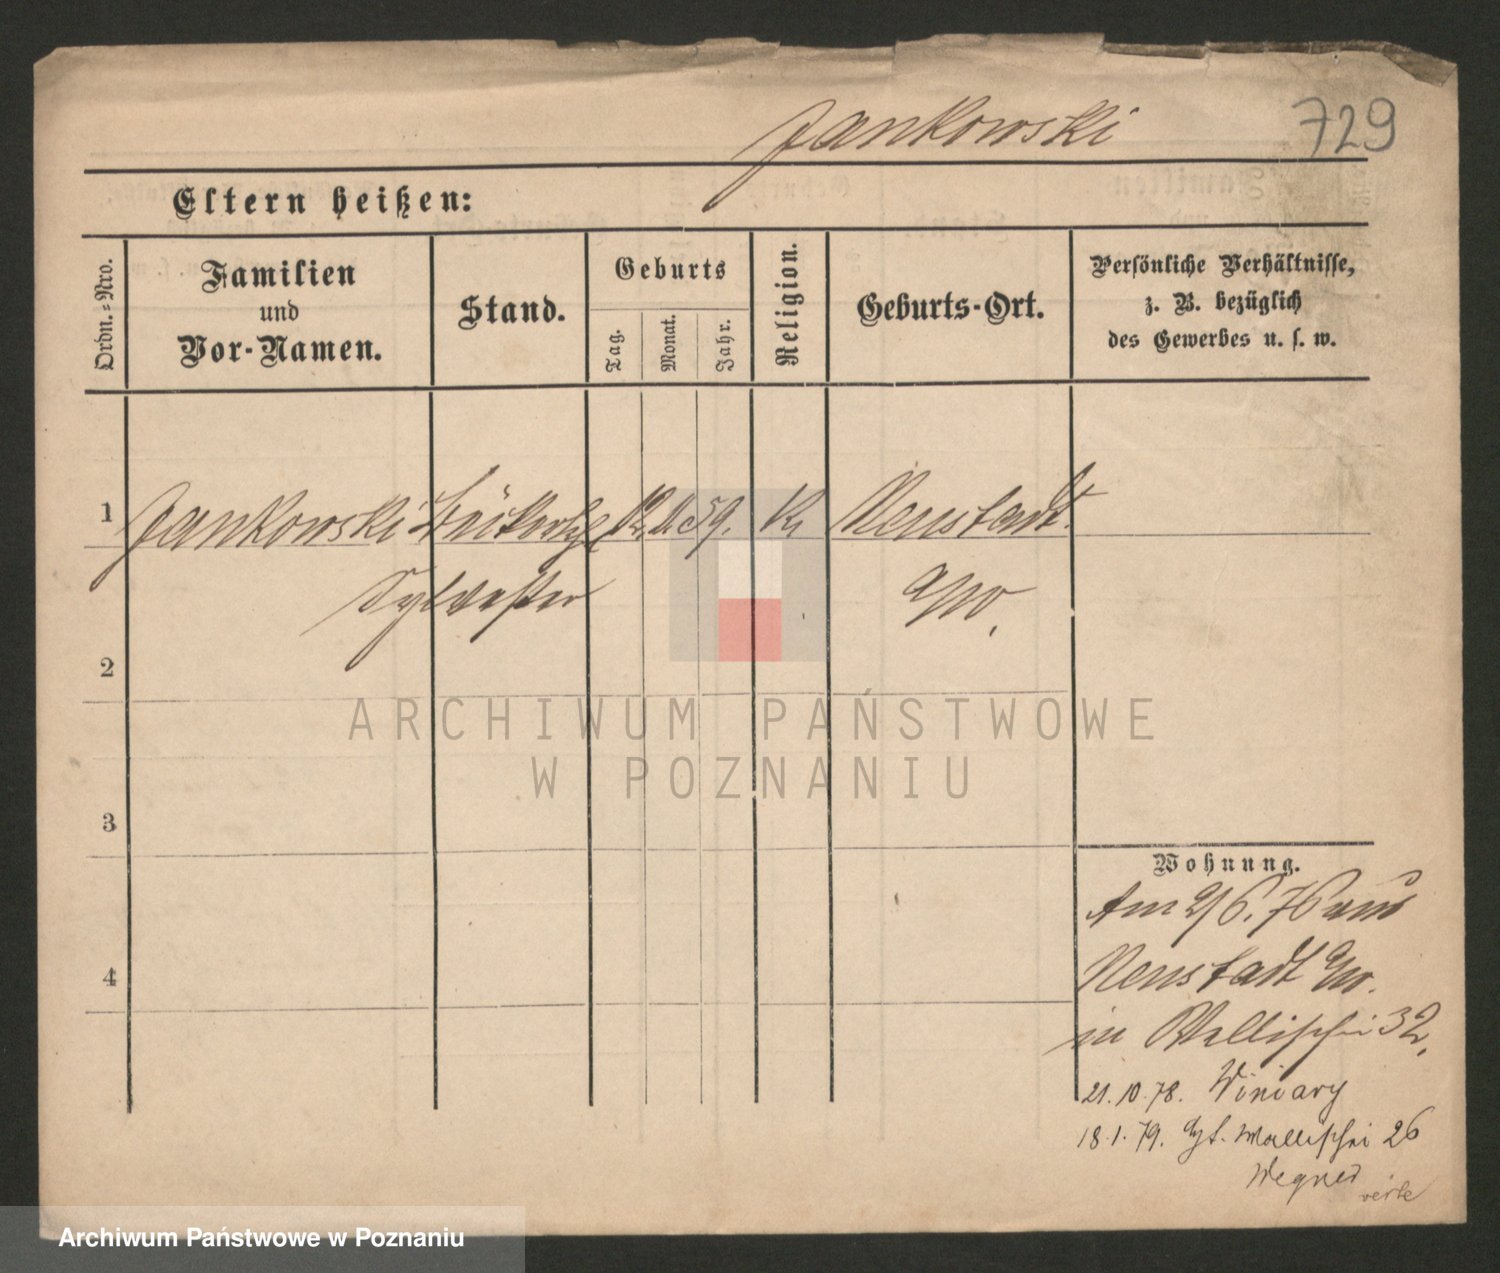 Jankowski
729
Eltern heißen:
Ordn.=Nro.
Familien
und
Vor-Namen.
Stand.
Geburts
Tag.
Monat.
Jahr.
Religion.
Geburts-Ort.
Persönliche Verhältnisse,
z. B. bezüglich
des Gewerbes u. s. w.
1 Jankowski 59. K. Neustadt
Sylvester a/W.
2
ARCHIWUM PAŃSTWOWE
W POZNANIU
3
Wohnung.
Am 2/6. 76 aus
Neustadt a/W.
in Wallischei 32.
4
21. 10. 78. Winiary
18. 1. 79. Wallischei 26
Wegner
verte
Archiwum Państwowe w Poznaniu